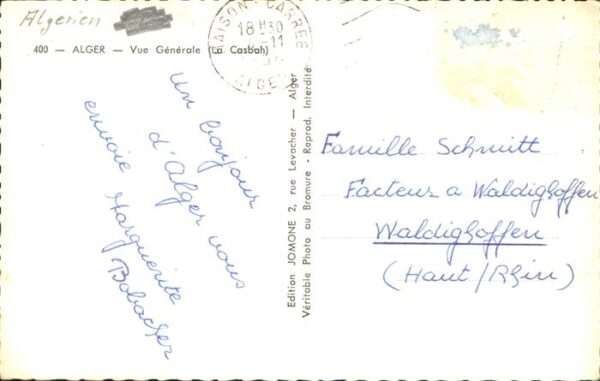 Algerien
400 — ALGER — Vue Générale (La Casbah)
MAISON-CARRÉE
18H30
-11
ALGER
un bonjour
d'Alger vous
envoie Marguerite
Bobacher
Edition JOMONE 2, rue Levacher — Alger
Véritable Photo au Bromure - Reprod. Interdite
Famille Schmitt
Facteur a Waldighoffen
Waldighoffen
(Haut/Rhin)